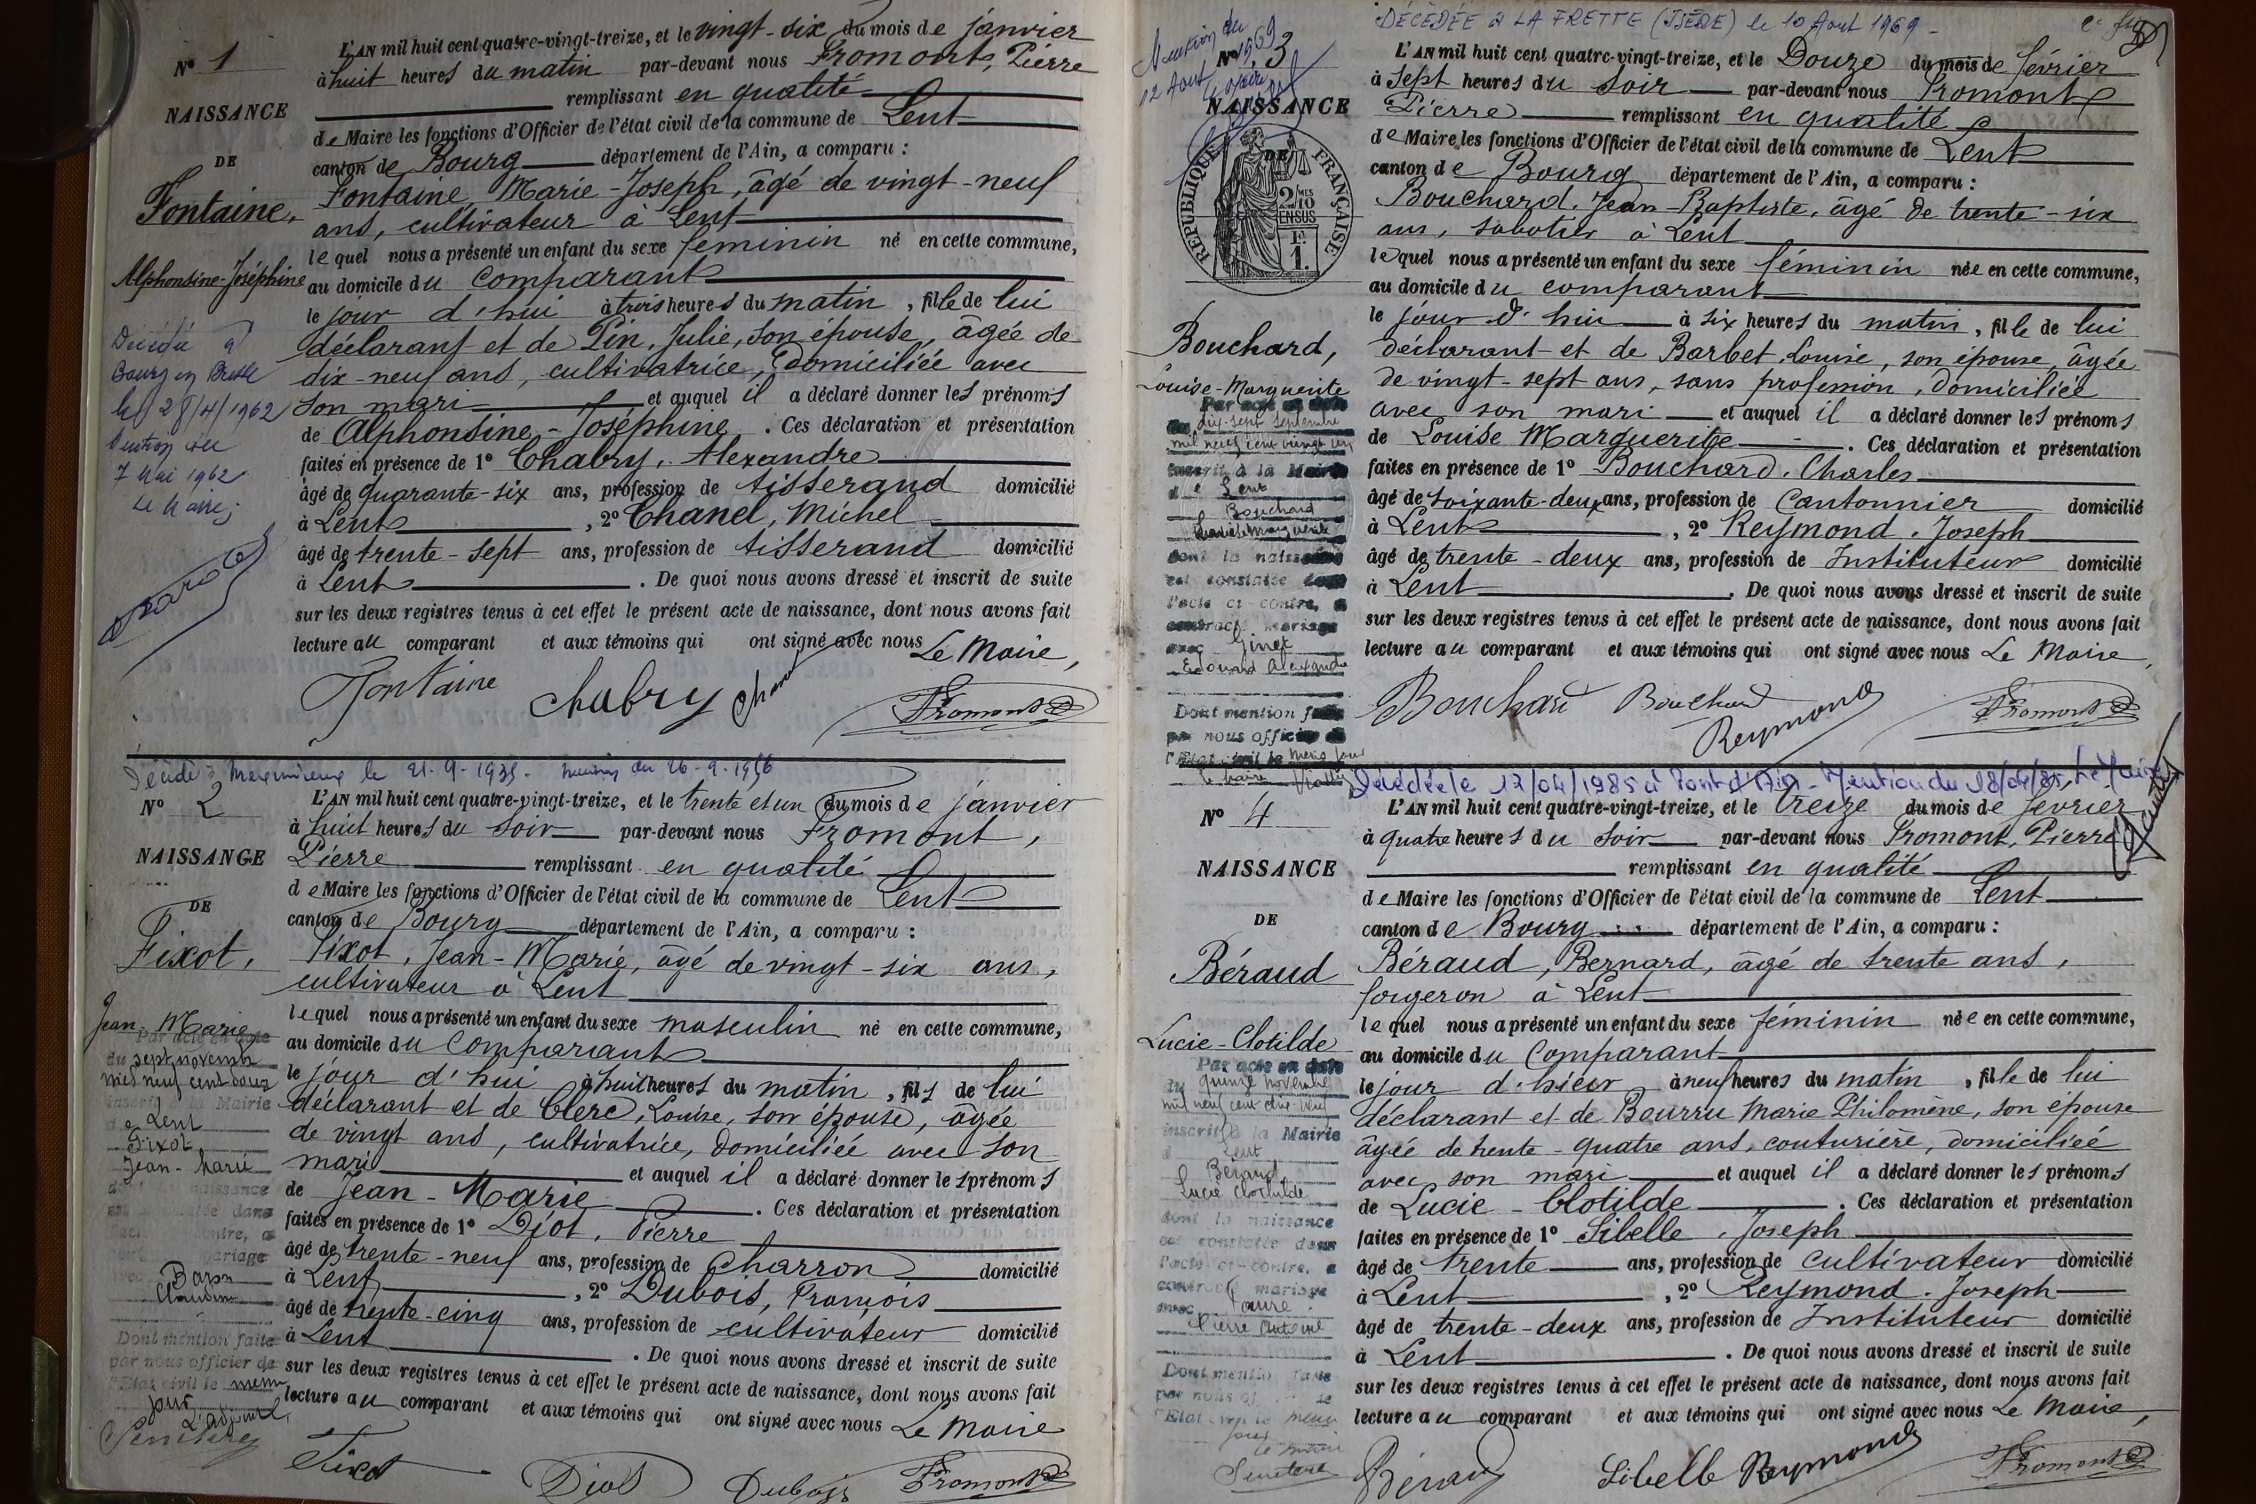 N° 1
NAISSANCE
DE
Fontaine,
Alphonsine-Joséphine
Décédée à
Bourg en Bresse
le 28/4/1962
Mention du
7 Mai 1962
Le Maire,
L'AN mil huit cent quatre-vingt-treize, et le vingt-six du mois de janvier
à huit heures du matin par-devant nous Fromont, Pierre
remplissant en qualité
de Maire les fonctions d'Officier de l'état civil de la commune de Lent
canton de Bourg département de l'Ain, a comparu :
Fontaine, Marie-Joseph, âgé de vingt-neuf
ans, cultivateur à Lent
lequel nous a présenté un enfant du sexe féminin né en cette commune,
au domicile du comparant
le jour d'hui à trois heures du matin, fille de lui
déclarant et de Pin, Julie, son épouse, âgée de
dix-neuf ans, cultivatrice, domiciliée avec
son mari et auquel il a déclaré donner les prénoms
de Alphonsine-Joséphine. Ces déclaration et présentation
faites en présence de 1° Chabry, Alexandre
âgé de quarante-six ans, profession de tisserand domicilié
à Lent, 2° Chanel, Michel
âgé de trente-sept ans, profession de tisserand domicilié
à Lent. De quoi nous avons dressé et inscrit de suite
sur les deux registres tenus à cet effet le présent acte de naissance, dont nous avons fait
lecture au comparant et aux témoins qui ont signé avec nous Le Maire,
Fontaine Chabry Chanel Fromont
Décédé à Meximieux le 21-9-1935. mention du 26-9-1956
N° 2
NAISSANCE
DE
Fixot,
Jean-Marie
Par acte en date
du sept novembre
mil neuf cent douze
inscrit à la Mairie
de Lent
Fixot
Jean-Marie
naissance
dans
contre, a
mariage
Claudine
Dont mention faite
par nous officier de
l'Etat civil le même
jour
L'adjoint,
L'AN mil huit cent quatre-vingt-treize, et le trente et un du mois de janvier
à huit heures du soir par-devant nous Fromont,
Pierre remplissant en qualité
de Maire les fonctions d'Officier de l'état civil de la commune de Lent
canton de Bourg département de l'Ain, a comparu :
Fixot, Jean-Marie, âgé de vingt-six ans,
cultivateur à Lent
lequel nous a présenté un enfant du sexe masculin né en cette commune,
au domicile du comparant
le jour d'hui à huit heures du matin, fils de lui
déclarant et de Clerc, Louise, son épouse, âgée
de vingt ans, cultivatrice, domiciliée avec son
mari et auquel il a déclaré donner les prénoms
de Jean-Marie. Ces déclaration et présentation
faites en présence de 1° Diot, Pierre
âgé de trente-neuf ans, profession de Charron domicilié
à Lent, 2° Dubois, François
âgé de trente-cinq ans, profession de cultivateur domicilié
à Lent. De quoi nous avons dressé et inscrit de suite
sur les deux registres tenus à cet effet le présent acte de naissance, dont nous avons fait
lecture au comparant et aux témoins qui ont signé avec nous Le Maire
Fixot Diot Dubois Fromont
DÉCÉDÉE à LA FRETTE (ISÈRE) le 10 Août 1969
Mention du
12 Août 1969
N° 3
NAISSANCE
DE
RÉPUBLIQUE FRANÇAISE
2/10 MES
EN SUS
1 F.
Bouchard,
Louise-Marguerite
Par acte en date
du dix-sept septembre
mil neuf cent vingt un
inscrit à la Mairie
de Lent
Bouchard
Louise Marguerite
dont la naissance
est constatée dans
l'acte ci-contre, a
contracté mariage
avec Ginet
Edouard Alexandre
Dont mention faite
par nous officier de
l'Etat civil le même jour
le maire
L'AN mil huit cent quatre-vingt-treize, et le Douze du mois de février
à sept heures du soir par-devant nous Fromont
Pierre remplissant en qualité
de Maire les fonctions d'Officier de l'état civil de la commune de Lent
canton de Bourg département de l'Ain, a comparu :
Bouchard, Jean-Baptiste, âgé de trente-six
ans, sabotier à Lent
lequel nous a présenté un enfant du sexe féminin née en cette commune,
au domicile du comparant
le jour d'hui à six heures du matin, fille de lui
déclarant et de Barbet, Louise, son épouse, âgée
de vingt-sept ans, sans profession, domiciliée
avec son mari et auquel il a déclaré donner les prénoms
de Louise Marguerite. Ces déclaration et présentation
faites en présence de 1° Bouchard, Charles
âgé de soixante-deux ans, profession de Cantonnier domicilié
à Lent, 2° Reymond, Joseph
âgé de trente-deux ans, profession de Instituteur domicilié
à Lent. De quoi nous avons dressé et inscrit de suite
sur les deux registres tenus à cet effet le présent acte de naissance, dont nous avons fait
lecture au comparant et aux témoins qui ont signé avec nous Le Maire,
Bouchard Bouchard Reymond Fromont
Décédée le 17/04/1985 à Pont d'Ain - Mention du 18/04/85, Le Maire
N° 4
NAISSANCE
DE
Béraud
Lucie-Clotilde
Par acte en date
du quinze novembre
mil neuf cent dix neuf
inscrit à la Mairie
de Lent
Béraud
Lucie Clotilde
dont la naissance
est constatée dans
l'acte ci-contre, a
contracté mariage
avec Faure
Pierre Antoine
Dont mention faite
par nous of de
l'Etat civil le même
jour
Le maire
L'AN mil huit cent quatre-vingt-treize, et le treize du mois de février
à quatre heures du soir par-devant nous Fromont, Pierre
remplissant en qualité
de Maire les fonctions d'Officier de l'état civil de la commune de Lent
canton de Bourg département de l'Ain, a comparu :
Béraud, Bernard, âgé de trente ans,
forgeron à Lent
lequel nous a présenté un enfant du sexe féminin née en cette commune,
au domicile du Comparant
le jour d'hier à neuf heures du matin, fille de lui
déclarant et de Beurru Marie Philomène, son épouse
âgée de trente-quatre ans, couturière, domiciliée
avec son mari et auquel il a déclaré donner les prénoms
de Lucie-Clotilde. Ces déclaration et présentation
faites en présence de 1° Sibelle, Joseph
âgé de trente ans, profession de cultivateur domicilié
à Lent, 2° Reymond, Joseph
âgé de trente-deux ans, profession de Instituteur domicilié
à Lent. De quoi nous avons dressé et inscrit de suite
sur les deux registres tenus à cet effet le présent acte de naissance, dont nous avons fait
lecture au comparant et aux témoins qui ont signé avec nous Le Maire,
Béraud Sibelle Reymond Fromont